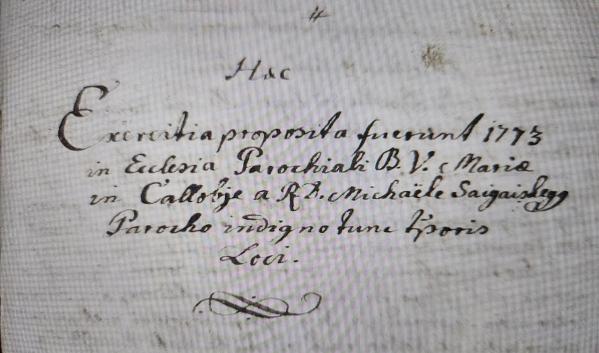 #
Hæc
Exercitia proposita fuerunt 1773
in Ecclesia Parochiali B. V. Mariæ
in Callobje a R D. Michaële
Parocho indigno tunc tporis
Loci.